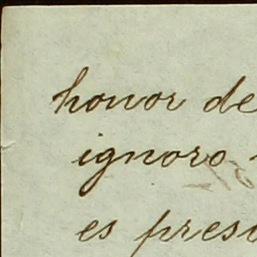 honor de
ignoro
es pres